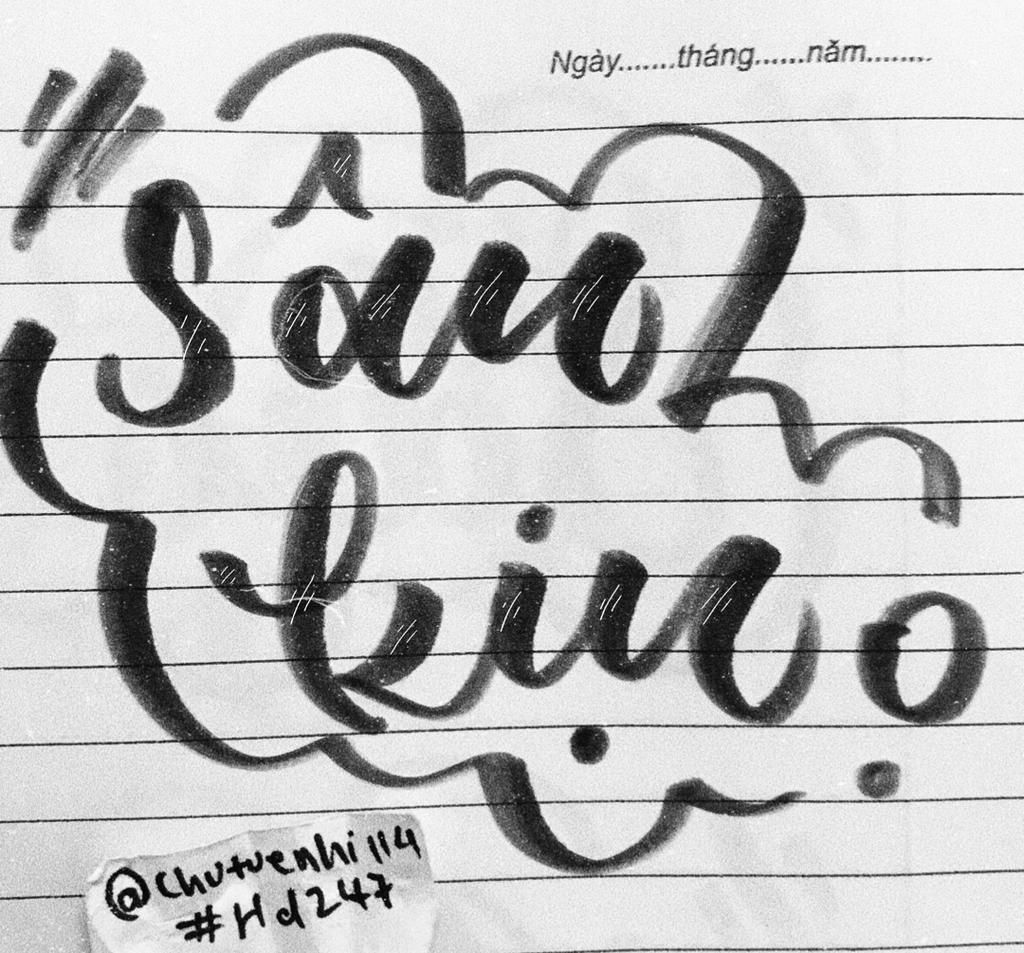 Ngày.......tháng......năm........
Sâu
kin
@chutuenhi114
#Hd247